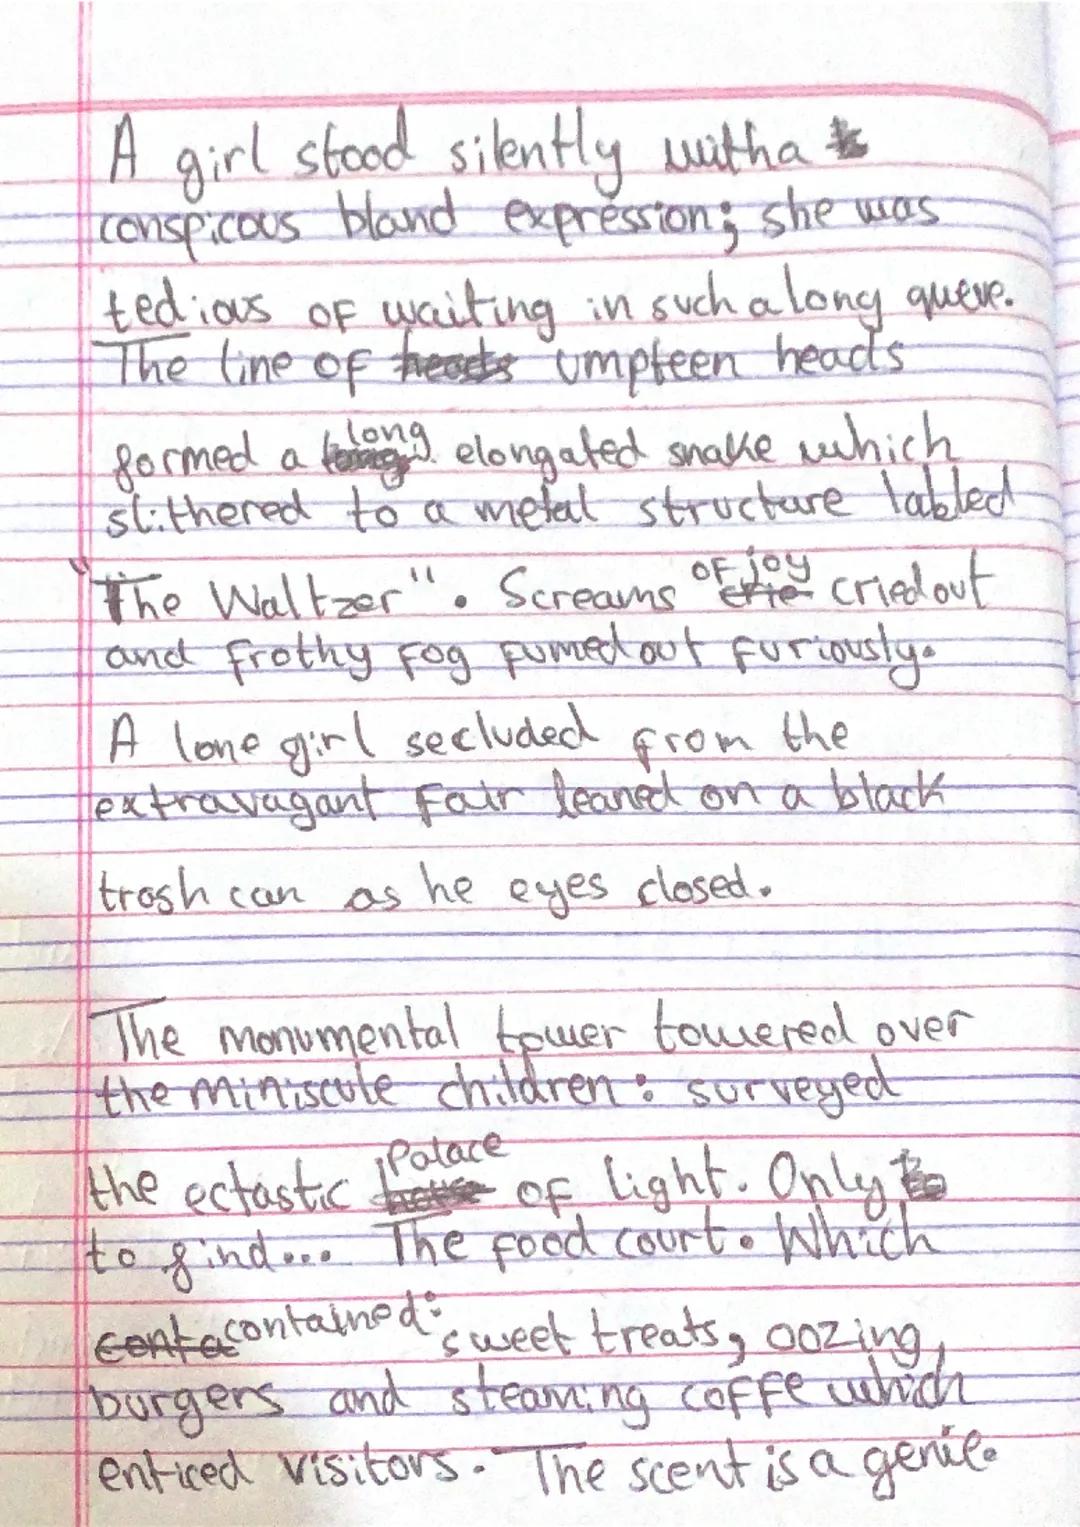 A girl stood silently with a
conspicous bland expression; she was
tedious of waiting in such a long queue.
The line of heads umpteen heads
formed a long elongated snake which
slithered to a metal structure labled
"The Waltzer". Screams of joy cried out
and frothy fog fumed out furiously.
A lone girl secluded from the
extravagant fair leaned on a black
trash can as he eyes closed.
The monumental tower towered over
the miniscule children: surveyed
the ectastic palace of light. Only to
to find... The food court. Which
conta contained: sweet treats, oozing,
burgers and steaming coffe which
enticed visitors. The scent is a genie.